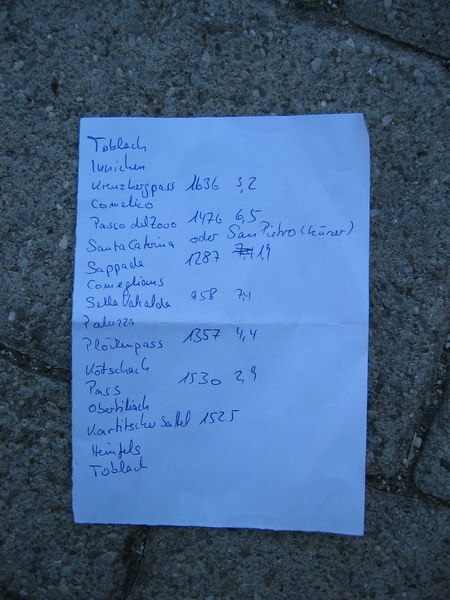 Toblach
Innichen
Kreuzbergpass 1636 3,2
Comelico
Passo del Zovo 1476 6,5
Santa Caterina oder San Pietro (kürzer)
Sappada 1287 19
Comeglians
Sella Valcalda 958 7,1
Paluzza
Plöckenpass 1357 4,4
Kötschach
Pass 1530 2,9
Obertilliach
Kartitscher Sattel 1525
Heinfels
Toblach